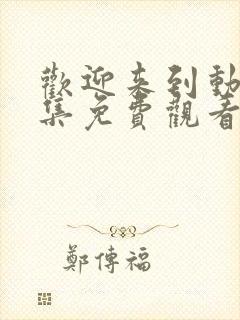 歡迎来到動
集免費觀看
鄭傳福